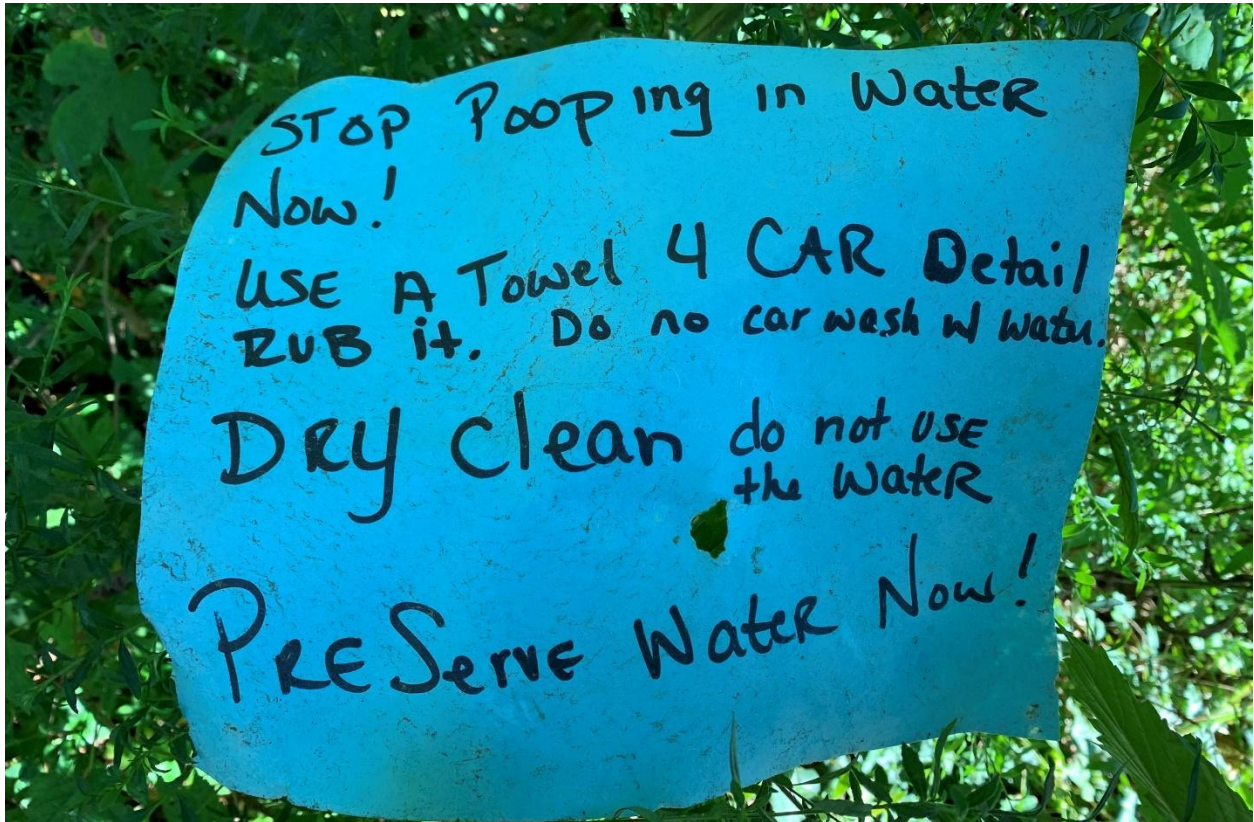 STOP Pooping in Water
Now!
USE A Towel 4 CAR Detail
RUB it. Do no car wash w/ water.
DRY clean do not USE
the Water
PRESERVE Water Now!